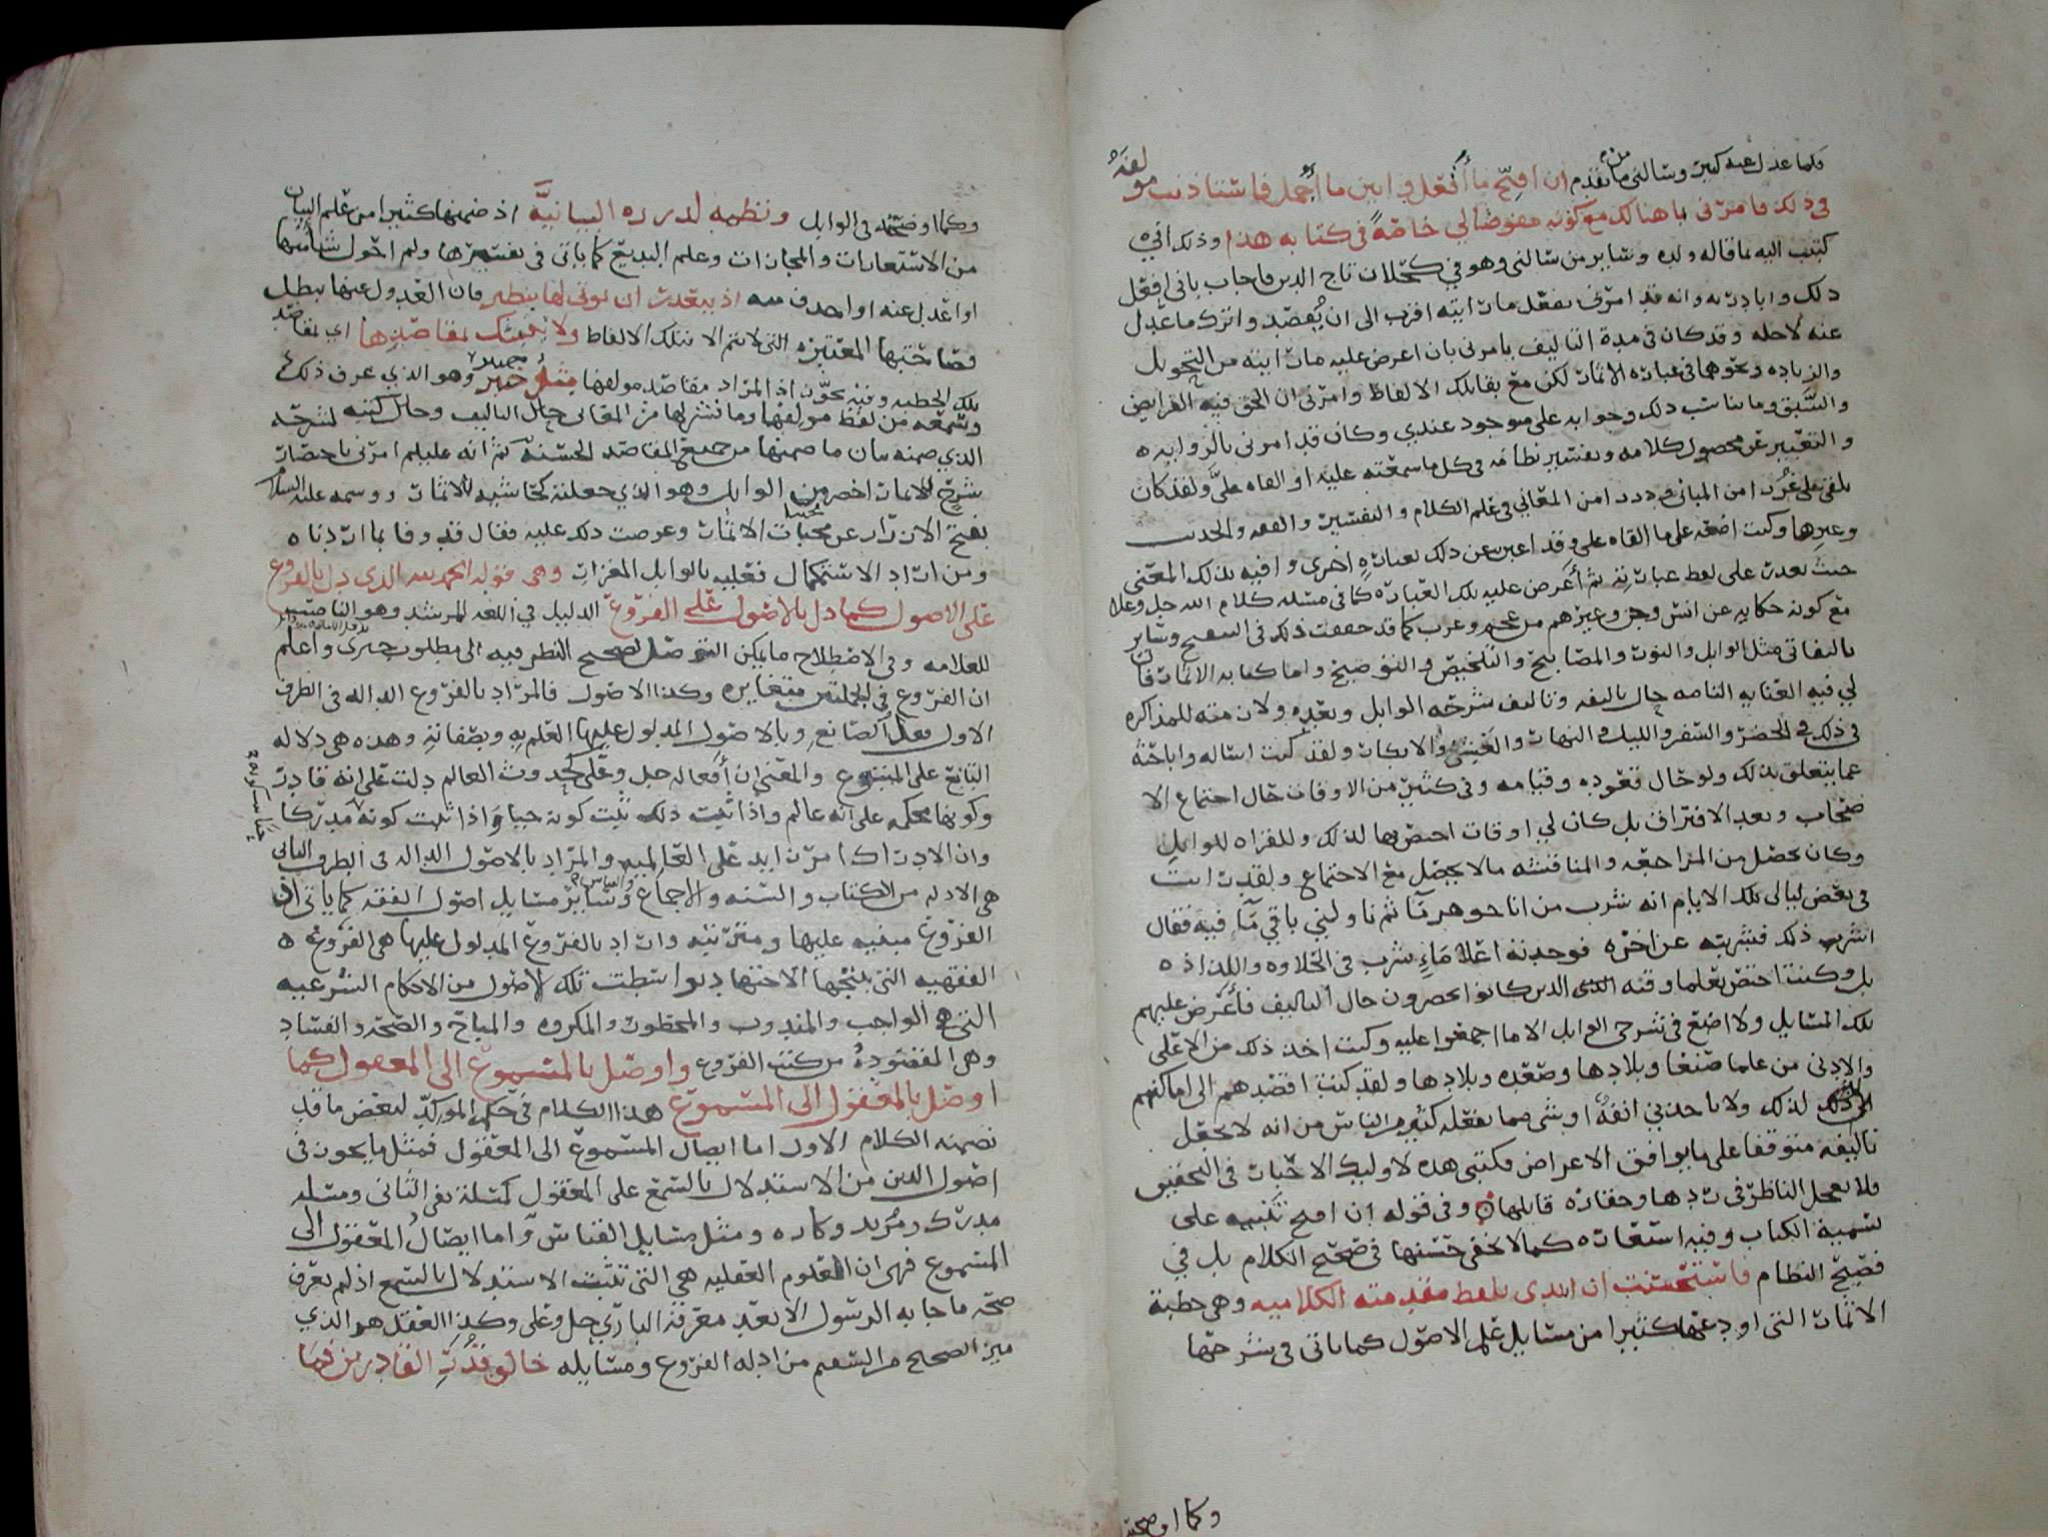 فلما عدل عنه كثير وسالني من تقدم ان افتح ما أُقفل وابين ما أُجمل فاستاذنت مولفهُ
في ذلك فامرني با هنالك مع كونه مفوضا لي خاصةً في كتابه هذا وذلك اني
كتبت اليه بما قاله ولده وساير من سالني وهو في كحلان تاج الدين فاجاب باني افعل
ذلك وابادر به وانه قد امرني بفعل ما رايته اقرب الى ان يُقصد واترك ما عدل
عنه لاجله وقد كان في مدة التاليف يامرني بان اعرض عليه ما رايته من التحويل
والزياده ونحوهما في عبارة الاثمار لكن مع بقا تلك الالفاظ وامرني ان الحق فيه الفرايض
والسبق وما يناسب ذلك وجوابه على موجود عندي وكان قد امرني بالروايه
والتعبير عن محصول كلامه وتفسير نظامه في كل ما سمعته عليه او القاه عليَّ ولقد كان
يلقي علي غُررا من المباني ودررا من المعاني في علم الكلام والتفسير والفقه والحديث
وغيرها وكنت اضعه على ما القاه علي وقد اعبر عن ذلك بعبارةٍ اخرى وافيه بذلك المعنى
حيث بعدت على لفظ عبارته ثم أعرض عليه تلك العبارة كما في مسئله كلام الله جل وعلا
مع كونه حكايه عن انس وجن وغيرهم من عجم وعرب كما قد حققت ذلك في وساير
تاليفاتي مثل الوابل والنور والمصابيح والتلخيص والتوضيح واما كتابه الاثمار فان
لي فيه العنايه التامه حال تاليفه وتاليف شرحه الوابل وبعده ولازمته للمذاكره
في ذلك في الحضر والسفر والليل والنهار والعشي والابكار ولقد كنت اساله واباحثه
عما يتعلق بذلك ولو حال قعوده وقيامه وفي كثير من الاوقات حال اجتماع الا
صحاب وبعد الافتراق بل كان لي اوقات اختص بها لذلك وللقراه للوابل
وكان يحصل من المراجعه والمناقشه ما لا يحصل مع الاجتماع ولقد رايت
في بعض ليالي تلك الايام انه شرب من انا جوهر ثم ناولني باقي مآءٍ فيه فقال
اشرب ذلك فشربته عن اخره فوجدته اعلا مَاءٍ شرب في الحلاوه واللذاذه
بل وكنت اختص بعلما وقته الذين كانوا يحضرون حال التاليف فأعرض عليهم
تلك المسايل ولا اضع في شرحي الوابل الا ما اجمعوا عليه وكنت اخذ ذلك من الاعلى
والادنى من علما صنعا وبلادها وصعده وبلادها ولقد كنت اقصدهم الى اماكنهم
لذلك ولا ياخذني انفهٌ او شي مما يفعله كثير من الناس من انه لا يجعل
تاليفه متوقفا على ما يوافق الاغراض فكتبي هذه لاوليك الاخيار في التحقيق
فلا يعجل الناظر في ردها وحقارة قايلها وفي قوله ان افتح تنبيه على
تسمية الكتاب وفيه استعاره كما لا تخفى حسنها في صحيح الكلام بل في
فصيح النظام فاستحسنت ان ابتدي بلفظ مقدمته الكلاميه وهي خطبة
الاثمار التي اودعتها كثيرا من مسايل علم الاصول كما ياتي في شرحها
وكما اوضحته
وكما اوضحته في الوابل ونظمه لدرره البيانيَّة اذ ضمنها كثيرا من علم البيان
من الاستعارات والمجازات وعلم البديع كما ياتي في تفسيرها ولم احول شيا منها
او اعدل عنه او احذف منه اذ يبعدت ان يوتى لها بنظير فان العدول عنها يبطل
فصاحتها المعتبره التي لا تتم الا بتلك الالفاظ ولا ينبئك لمقاصدها اي لمقاصد
تلك الخطبه وفيه تجوّز اذ المراد مقاصد مولفها مثلُ خبير وهو الذي عرف ذلك
وسمعه من لفظ مولفها وما تشير لها من المعاني حال التاليف وحال كتبته لشرحه
الذي ضمنه بيان ما ضمنها من جميع المقاصد الحسنة ثم انه عليلم امرني باختصار
شرح للاثمار اخصر من الوابل وهو الذي جعلته كحاشيه للاثمار ووسمه عليه السلام
بفتح الازرار عن مخبات الاثمار وعرضت ذلك عليه فقال قد وفا بما اردناه
ومن اراد الاستكمال فعليه بالوابل المغزار وهي قوله الحمد لله الذي دل بالفروع
على الاصول كما دل بالاصول على الفروع الدليل في اللغه المرشد وهو الناصب
للعلامه وفي الاصطلاح ما يمكن التوصل بصحيح النظر فيه الى مطلوب خبري واعلم
ان الفروع في الجملتين متغايره وكذا الاصول فالمراد بالفروع الداله في الطرف
الاول فعل الصانع وبالاصول المدلول عليها العلم بهِ وبصفاته وهذه هي دلاله
التابع على المتبوع والمعنى ان أفعاله جل وعلى كحدوث العالم دلت على انه قادر
وكونها محكمه على انه عالم واذا ثبت ذلك ثبت كونه حيا واذا ثبت كونه مدركا
وان الادراك امر زايد على العالميه والمراد بالاصول الداله في الطرف الثاني
هي الادله من الكتاب والسنه والاجماع والقياس وساير مسايل اصول الفقه كما ياتي ان
الفروع مبنيه عليها ومترتبه واراد بالفروع المدلول عليها هي الفروع
الفقهيه التي ينتجها الاجتهاد بواسطت تلك الاصول من الاحكام الشرعيه
التي هي الواجب والمندوب والمحظور والمكروه والمباح والصحه والفساد
وهي المقصودهُ من كتب الفروع واوصل بالمسموع الى المعقول كما
اوصل بالمعقول الى المسموع هذا الكلام في حكم الموكدّ لبعض ما قد
تضمنه الكلام الاول اما ايصال المسموع الى المعقول فمثل ما يجوز في
اصول الدين من الاستدلال بالسمع على المعقول كمسئلة نفي الثاني ومسئله
مدرك ومُريد وكاره ومثل مسايل القياس واما ايصالُ المعقول الى
المسموع فهي ان العلوم العقليه هي التي تثبت الاستدلال بالسمع اذ لم يعرف
صحة ما جا به الرسول الا بعد معرفة الباري جل وعلى وكذا العقل هو الذي
ميز الصحيح من السقيم من ادله الفروع ومسايله خالق قُدَرِ القادرين فما